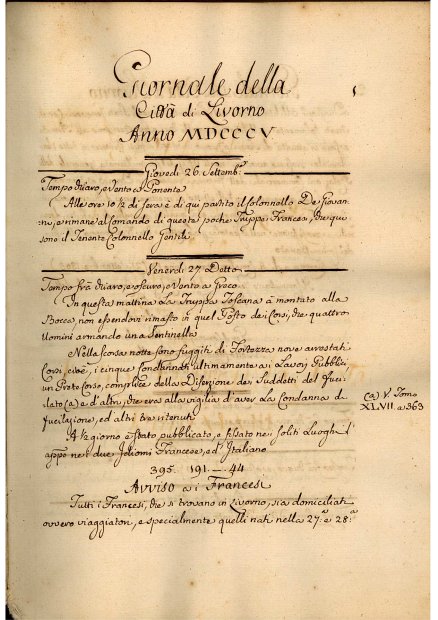 Giornale della
Città di Livorno
Anno MDCCCV
Giovedì 26 Settemb.e
Tempo chiaro, e Vento a Ponente
Alle ore 10 1/2 di sera è di qui partito il Colonnello De Giovan-
ni, e rimane al Comando di queste poche Truppe Francesi, che qui
sono il Tenente Colonnello Gentili
Venerdì 27 Detto
Tempo frà chiaro, e oscuro, e Vento a Greco
In questa mattina La Truppa Toscana à montato alla
Bocca, non essendovi rimasto in quel Posto de Corsi, che quattro
Uomini armando una Sentinella
Nella scorsa notte sono fuggiti di Fortezza nove arrestati
Corsi, cioè, i cinque Condannati ultimamente ai Lavori Pubblici
un Prete Corso, complice della Diserzione de Suddetti del Fuci-
lato (a) e d'altri, che era alla vigilia d'aver La Condanna di
fucilazione, ed altri tre ritenuti
(a) V. Tomo
XLVII. a 363
A 1/2 giorno è stato pubblicato, e fissato nei soliti Luoghi l'
appo nei due Idiomi Francese, ed Italiano
395. 191 — 44
Avviso a i Francesi
Tutti i Francesi, che si trovano in Livorno, sia domiciliati
ovvero viaggiatori, e specialmente quelli nati nella 27.a e 28.a